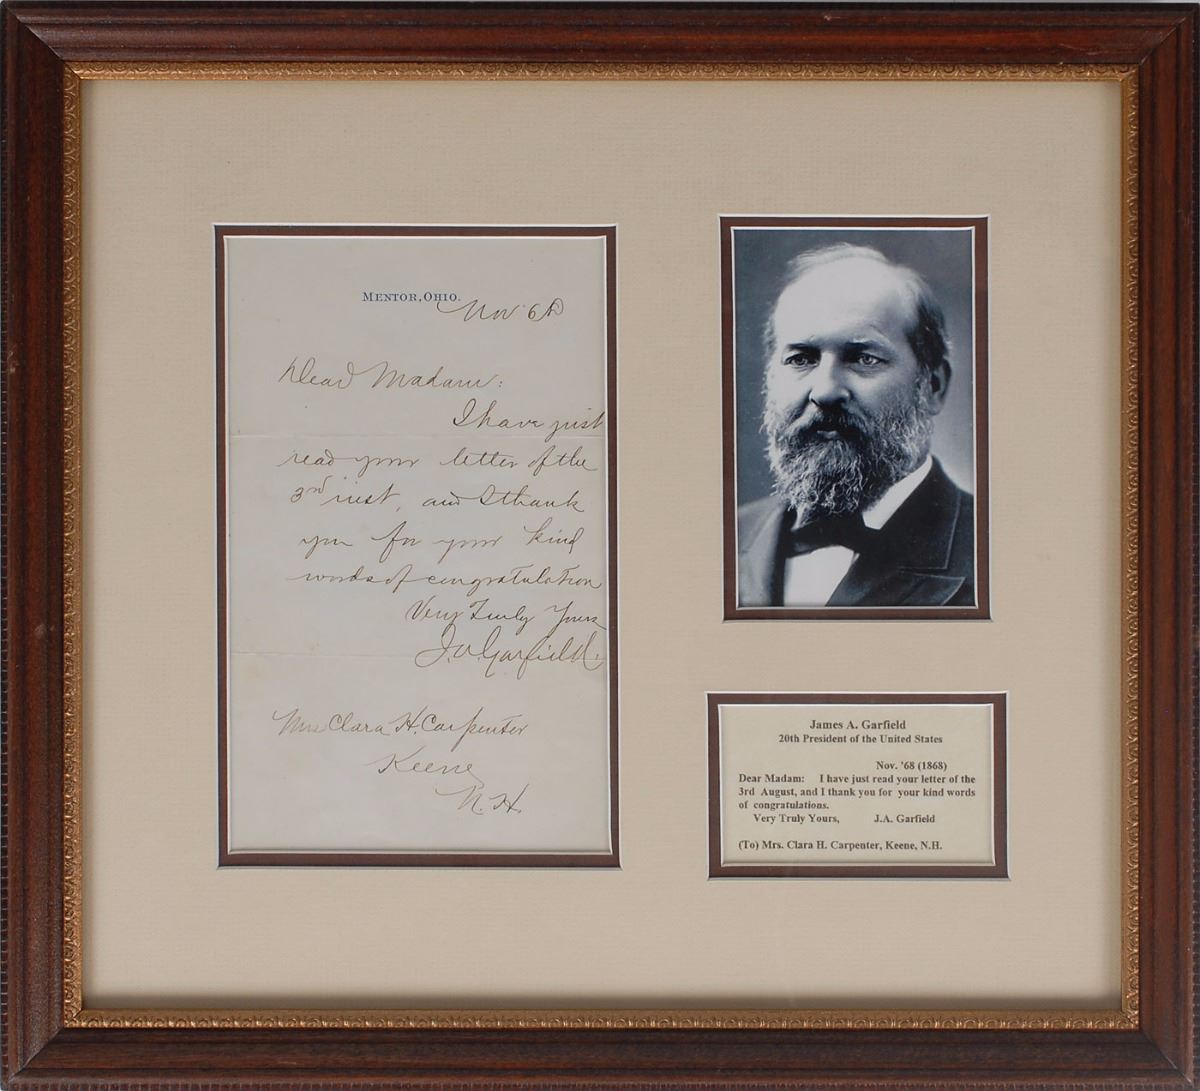 MENTOR, OHIO.
Nov 6th
Dear Madam:
I have just
read your letter of the
3rd inst, and I thank
you for your kind
words of congratulation
Very Truly Yours
J. A. Garfield.
Mrs Clara H. Carpenter
Keene
N. H.
James A. Garfield
20th President of the United States
Nov. '68 (1868)
Dear Madam: I have just read your letter of the
3rd August, and I thank you for your kind words
of congratulations.
Very Truly Yours, J.A. Garfield
(To) Mrs. Clara H. Carpenter, Keene, N.H.